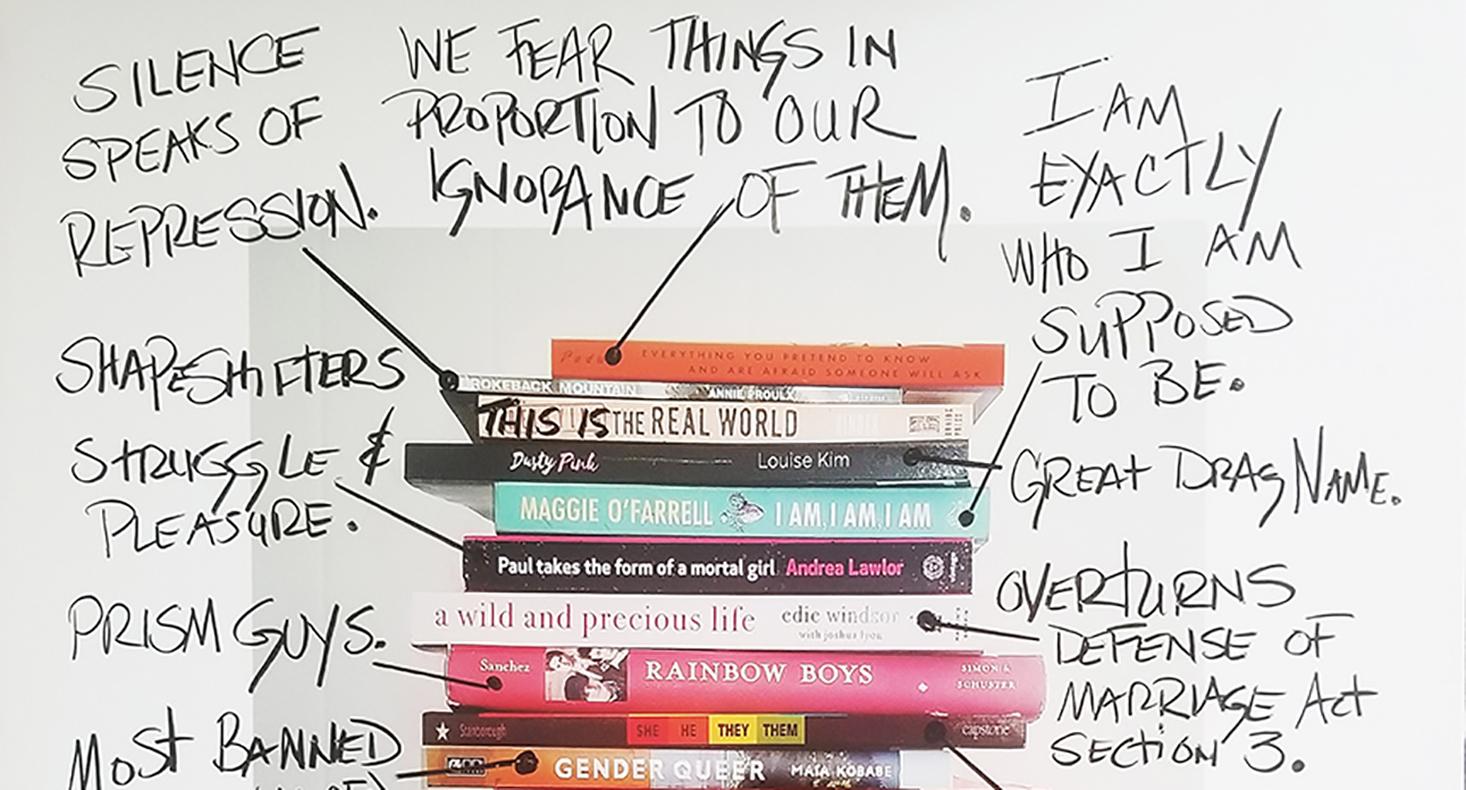 SILENCE
SPEAKS OF
REPRESSION.
WE FEAR THINGS IN
PROPORTION TO OUR
IGNORANCE OF THEM.
I AM
EXACTLY
WHO I AM
SUPPOSED
TO BE.
SHAPESHIFTERS
STRUGGLE &
PLEASURE.
PRISM GUYS.
MOST BANNED
GREAT DRAG NAME.
OVERTURNS
DEFENSE OF
MARRIAGE ACT
SECTION 3.
EVERYTHING YOU PRETEND TO KNOW
AND ARE AFRAID SOMEONE WILL ASK
BROKEBACK MOUNTAIN ANNIE PROULX
THIS IS THE REAL WORLD
Dusty Pink Louise Kim
MAGGIE O'FARRELL I AM, I AM, I AM
Paul takes the form of a mortal girl Andrea Lawlor
a wild and precious life edie windsor
with joshua lyon
Sanchez RAINBOW BOYS SIMON &
SCHUSTER
SHE HE THEY THEM capstone
GENDER QUEER MAIA KOBABE